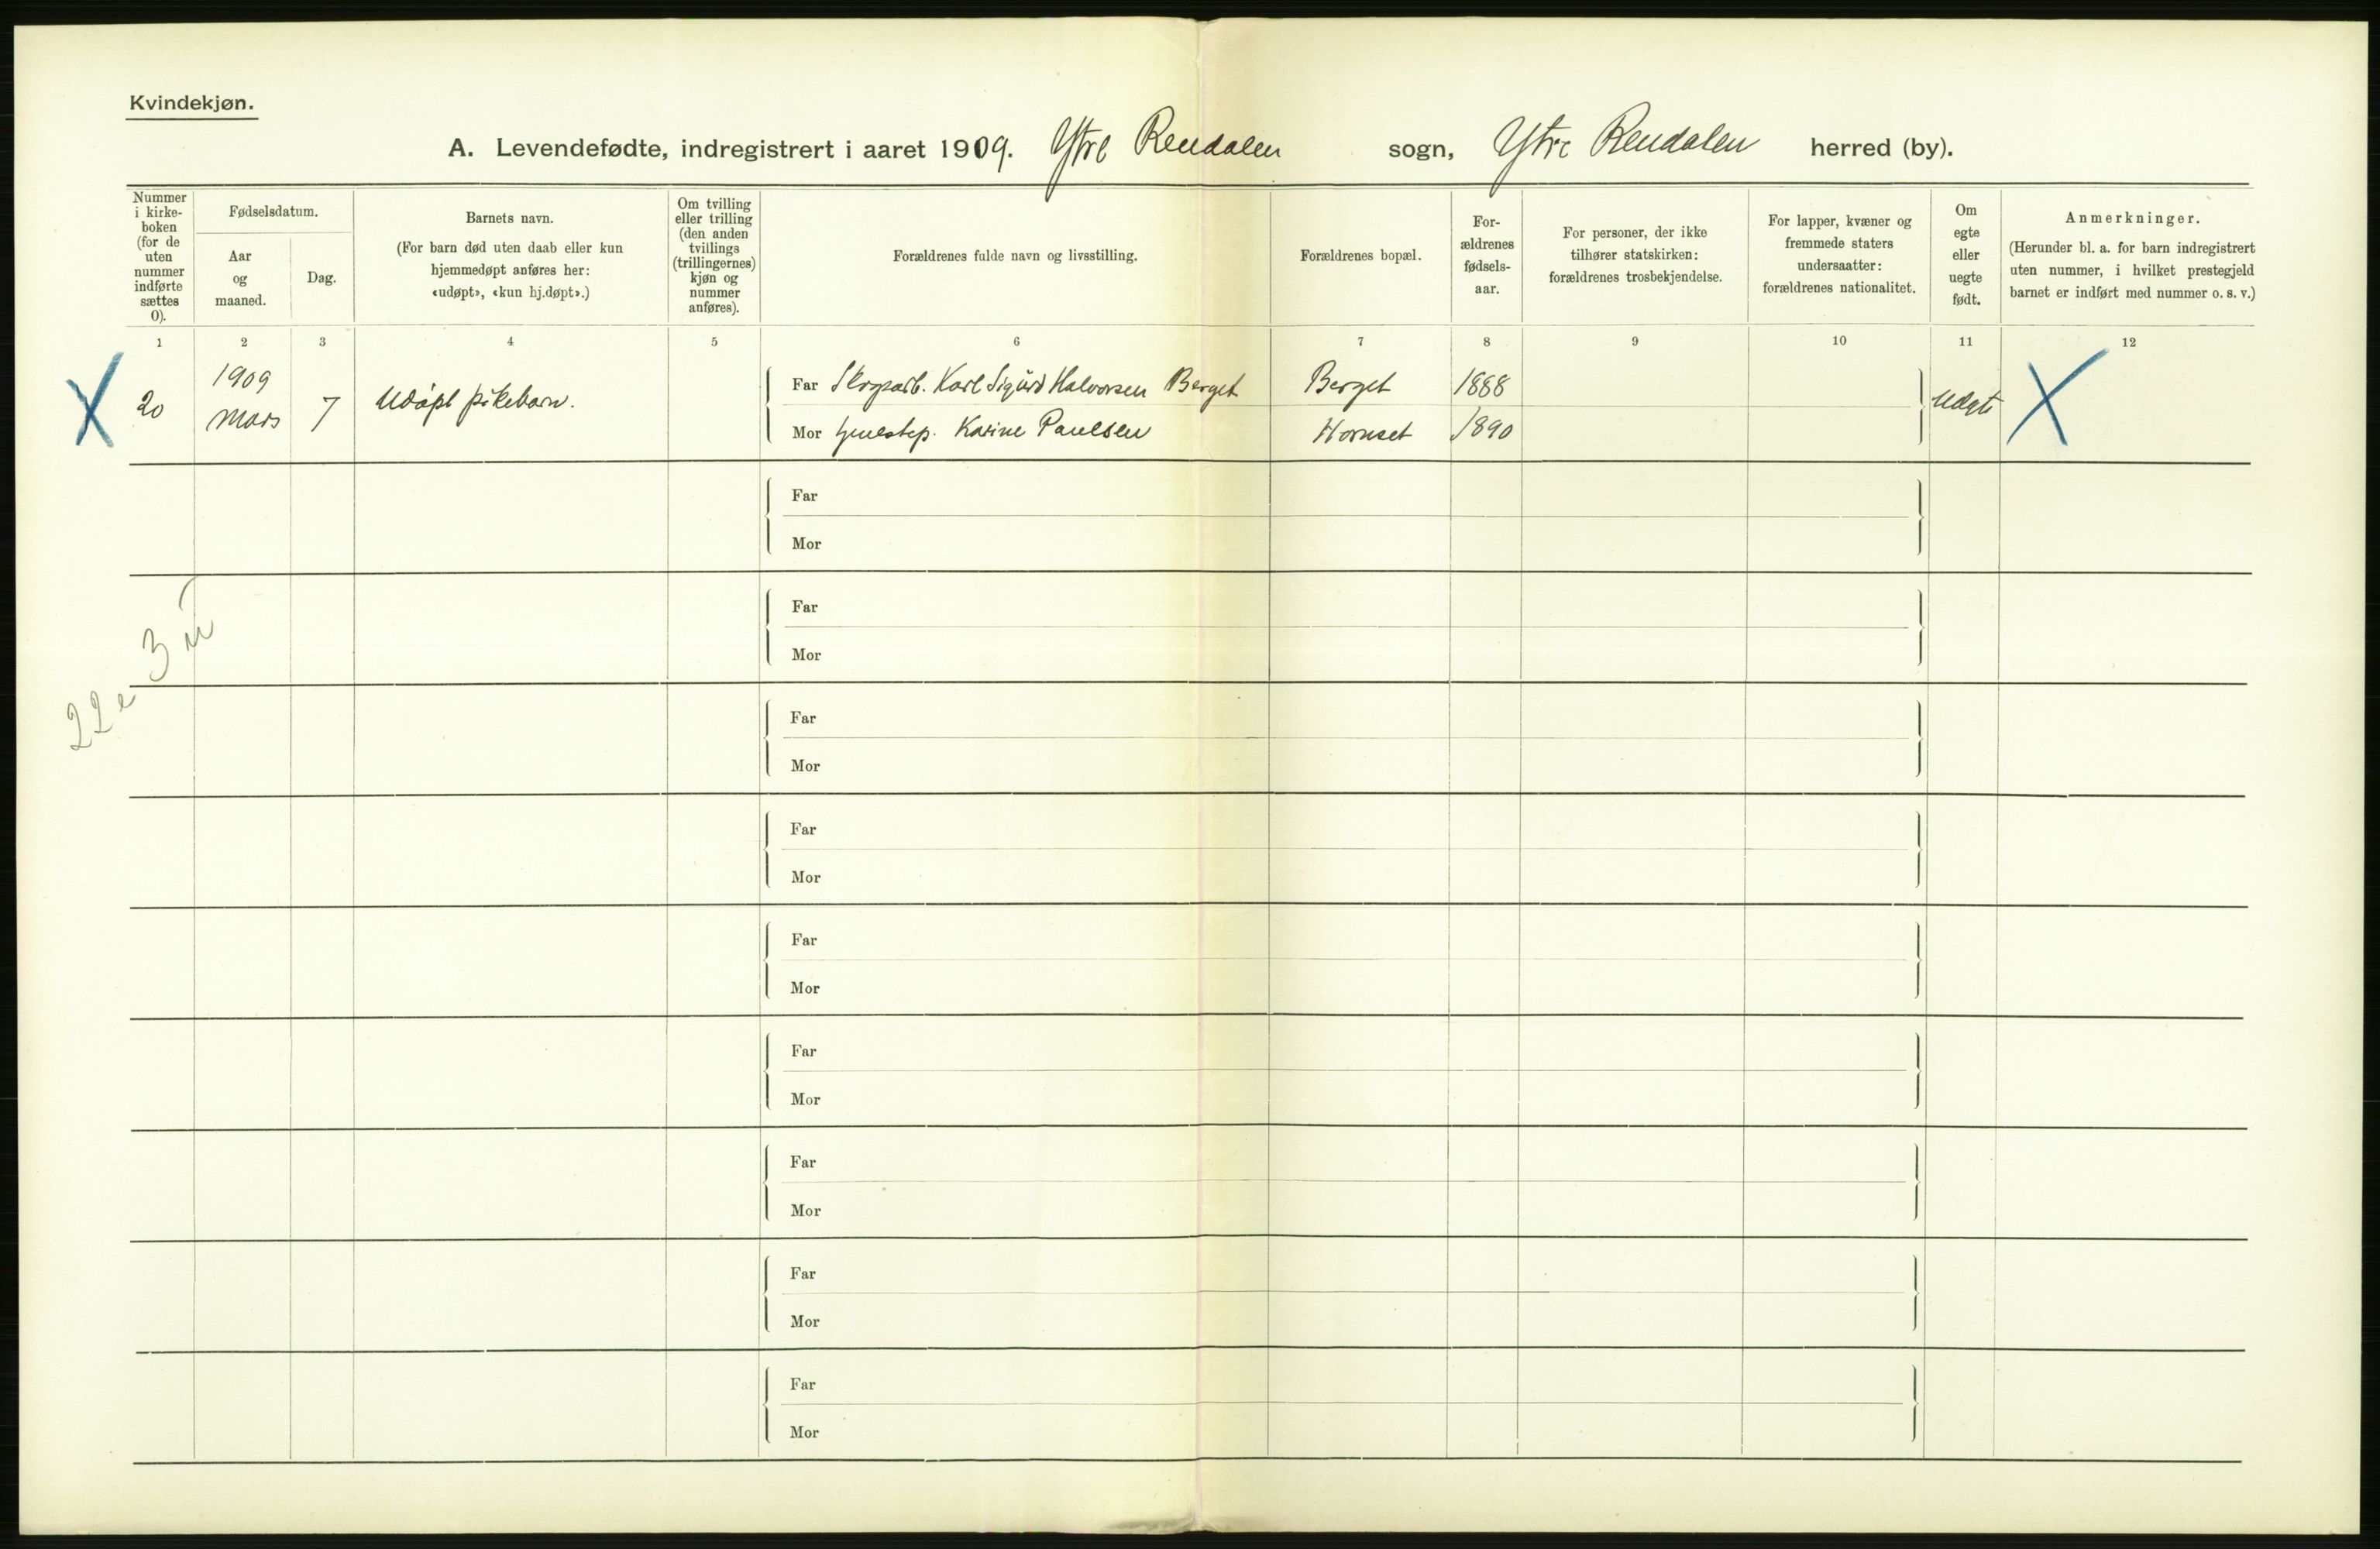 Kvindekjøn.
A. Levendefødte, indregistrert i aaret 1909. Ytre Rendalen sogn, Ytre Rendalen herred (by).
Nummer i kirke-boken (for de uten nummer indførte sættes 0).
Fødselsdatum.
Aar og maaned.
Dag.
Barnets navn.
(For barn død uten daab eller kun hjemmedøpt anføres her: «udøpt», «kun hj.døpt».)
Om tvilling eller trilling (den anden tvillings (trillingernes) kjøn og nummer anføres).
Forældrenes fulde navn og livsstilling.
Forældrenes bopæl.
For-ældrenes fødsels-aar.
For personer, der ikke tilhører statskirken: forældrenes trosbekjendelse.
For lapper, kvæner og fremmede staters undersaatter: forældrenes nationalitet.
Om egte eller uegte født.
Anmerkninger.
(Herunder bl. a. for barn indregistrert uten nummer, i hvilket prestegjeld barnet er indført med nummer o. s. v.)
1 2 3 4 5 6 7 8 9 10 11 12
X 20 1909 Mars 7 Udøpt pikebarn.
Far Skogsarb. Karl Sigurd Halvorsen Berget Berget 1888
Mor Karine Paulsen Hornset 1890
X
Far
Mor
Far
Mor
3 u
22 e
Far
Mor
Far
Mor
Far
Mor
Far
Mor
Far
Mor
Far
Mor
Far
Mor